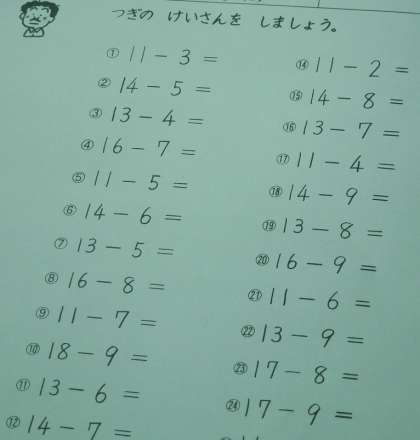 つぎの けいさんを しましょう。
① 11 - 3 =
② 14 - 5 =
③ 13 - 4 =
④ 16 - 7 =
⑤ 11 - 5 =
⑥ 14 - 6 =
⑦ 13 - 5 =
⑧ 16 - 8 =
⑨ 11 - 7 =
⑩ 18 - 9 =
⑪ 13 - 6 =
⑫ 14 - 7 =
⑭ 11 - 2 =
⑮ 14 - 8 =
⑯ 13 - 7 =
⑰ 11 - 4 =
⑱ 14 - 9 =
⑲ 13 - 8 =
⑳ 16 - 9 =
㉑ 11 - 6 =
㉒ 13 - 9 =
㉓ 17 - 8 =
㉔ 17 - 9 =